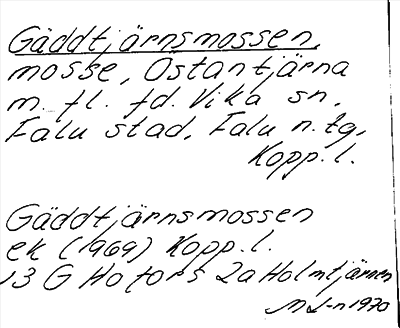 Gäddtjärnsmossen,
mosse, Östantjärna
m. fl. fd. Vika sn,
Falu stad, Falu n. tg,
Kopp. l.
Gäddtjärnsmossen
ek (1969) Kopp. l.
13 G Hofors 2a Holmtjärnen
1970